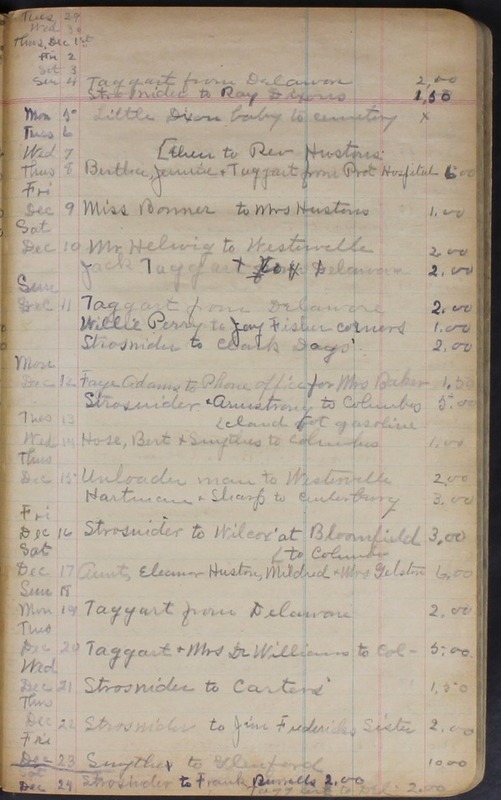 Tues 29
Wed 30
Thus, Dec 1st
Fri 2
Sat 3
Sun 4 Taggart from Delaware 2.00
Strosnider to Ray Dixons 1.50
Mon 5 Little Dixon baby to cemetery x
Tues 6
Wed 7 [then to Rev Hustons
Thus 8 Bertha, Jennie + Taggart from Prot Hospital 6.00
Fri
Dec 9 Miss Bonner to Mrs Hustons 1.00
Sat
Dec 10 Mr Helwig to Westerville 2.00
Jack Taggart to Delaware 2.00
Sun
Dec 11 Taggart from Delaware 2.00
Willie Perry to Jay Fisher corners 1.00
Strosnider to Clark Days' 2.00
Mon
Dec 12 Faye Adams to Phone office for Mrs Baker 1.50
Strosnider + Armstrong to Columbus 5.00
Tues 13 gasoline
Wed 14 Hose, Bert + Smythes to Columbus 1.00
Thus
Dec 15 Unloader man to Westerville 2.00
Hartman + Sharp to Centerburg 3.00
Fri
Dec 16 Strosnider to Wilcox' at Bloomfield 3.00
Sat (to Columbus
Dec 17 Aunt, Eleanor Huston, Mildred + Mrs Gelston 6.00
Sun 18
Mon 19 Taggart from Delaware 2.00
Tues
Dec 20 Taggart + Mrs Dr Williams to Col- 5.00
Wed
Dec 21 Strosnider to Carters' 1.50
Thus
Dec 22 Strosnider to Jim Fredericks Sister 2.00
Fri
Dec 23 Smythes to 10.00
Sat
Dec 24 Strosnider to Frank Burrells 2.00
Taggart to Del. 2.00